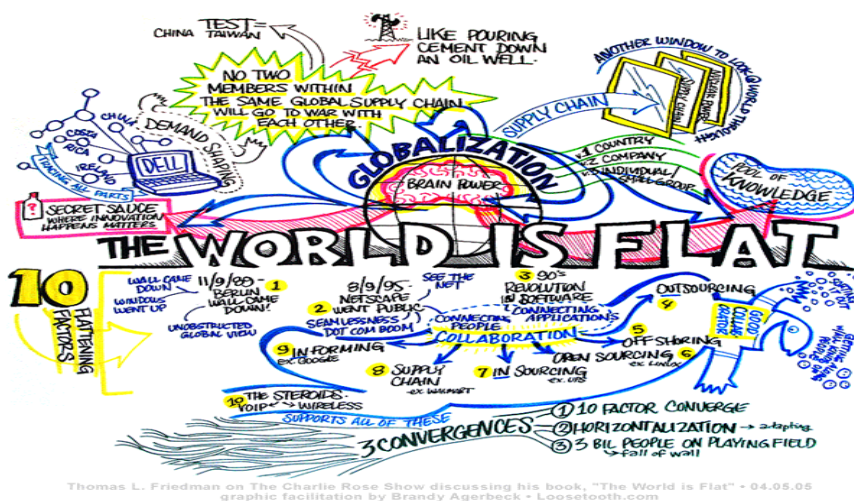 TEST =
CHINA TAIWAN
LIKE POURING
CEMENT DOWN
AN OIL WELL.
NO TWO
MEMBERS WITHIN
THE SAME GLOBAL SUPPLY CHAIN
WILL GO TO WAR WITH
EACH OTHER.
ANOTHER WINDOW TO LOOK@WORLD THROUGH
SUPPLY CHAIN
SUPPLY CHAIN
CHINA
COSTA
RICA
IRELAND
DELL
DEMAND SHAPING
TRACING ALL PARTS
GLOBALIZATION
BRAIN POWER
v.1 COUNTRY
v.2 COMPANY
v.3 INDIVIDUAL/
SMALL GROUP
POOL OF
KNOWLEDGE
?
SECRET SAUCE
WHERE INNOVATION
HAPPENS MATTERS.
THE WORLD IS FLAT
10
FLATTENING
FACTORS
WALL CAME
DOWN
WINDOWS
WENT UP
11/9/89 -
BERLIN
WALL CAME
DOWN!
1
UNOBSTRUCTED
GLOBAL VIEW
8/9/95 -
NETSCAPE
2 WENT PUBLIC
SEE THE
NET
SEAMLESSNESS
DOT COM BOOM
3 90's
REVOLUTION
IN SOFTWARE
CONNECTING
APPLICATIONS
CONNECTING
PEOPLE
COLLABORATION
OUTSOURCING
4
5
OFFSHORING
OPEN SOURCING 6
ex. LINUX
7 IN SOURCING
ex. UPS
8 SUPPLY
CHAIN
ex. WALMART
9 INFORMING
ex. GOOGLE
10 THE STEROIDS.
VOIP WIRELESS
SUPPORTS ALL OF THESE
3 CONVERGENCES
1 10 FACTOR CONVERGE
2 HORIZONTALIZATION → adapting
3 3 BIL PEOPLE ON PLAYING FIELD
"fall of wall
Thomas L. Friedman on The Charlie Rose Show discussing his book, "The World is Flat" • 04.05.05
graphic facilitation by Brandy Agerbeck • Loosetooth.com